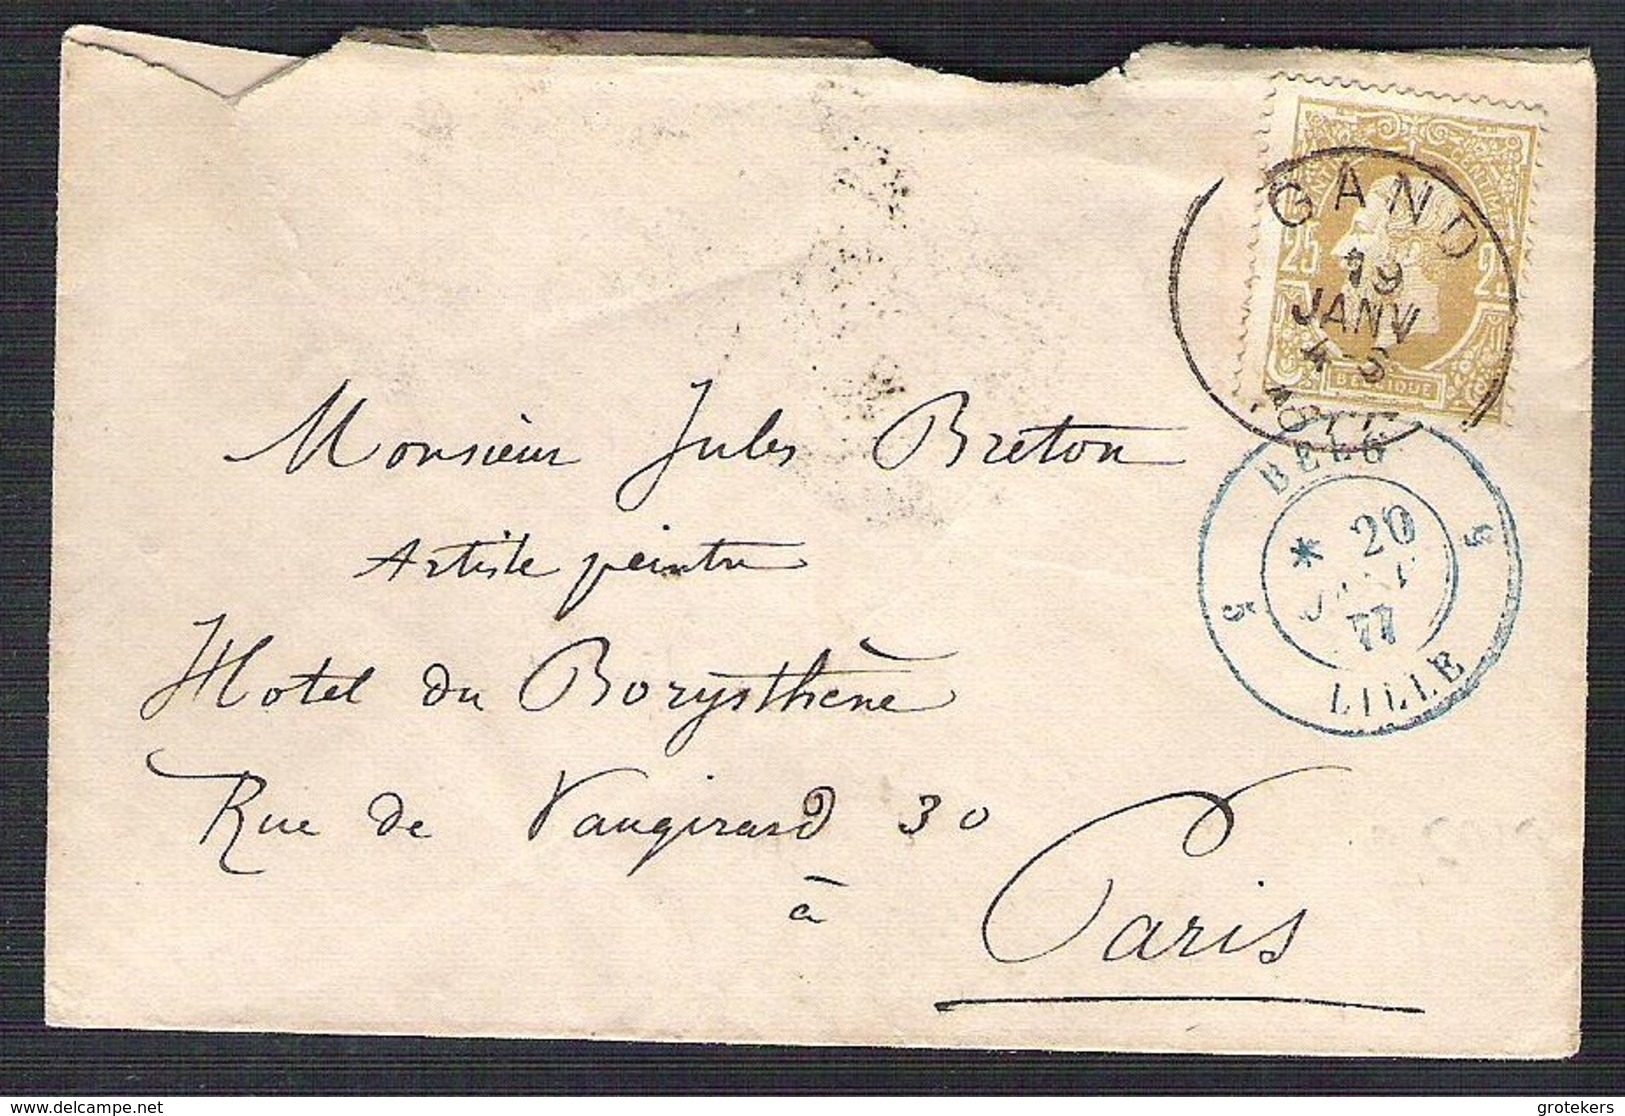 CENTIMES
25 25
BELGIQUE
GAND
19
JANV
4-S
1877
BELG
5 * 20 5
JANV
77
LILLE
Monsieur Jules Breton
Artiste peintre
Hotel du Borysthène
Rue de Vaugirard 30
à Paris
©delcampe.net
grotekers